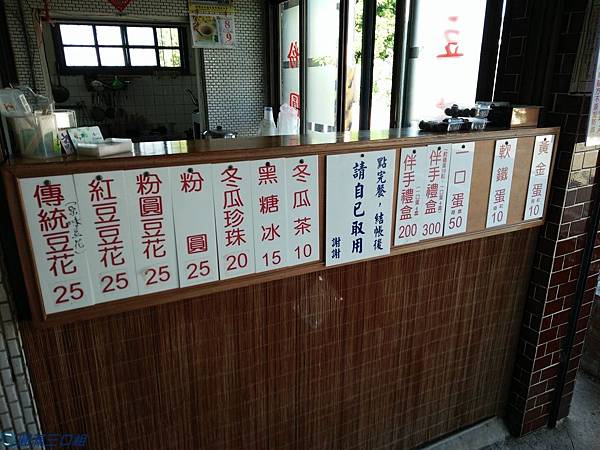 傳統豆花
25
紅豆豆花
25
粉圓豆花
25
粉圓
25
冬瓜珍珠
20
黑糖冰
15
冬瓜茶
10
點完餐，結帳後
請自己取用
謝謝
伴手禮盒
200
伴手禮盒
300
一口蛋
50
軟鐵蛋
10
黃金蛋
10
豆
粉
圓